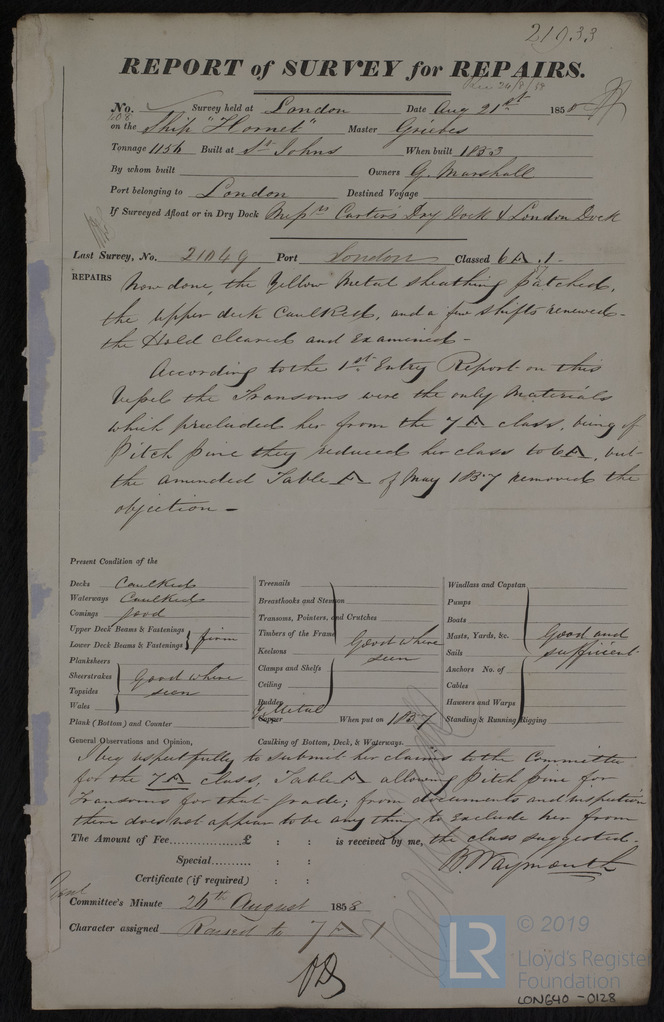 21933
REPORT of SURVEY for REPAIRS.
Rec 24/8/58
No. Survey held at London Date Aug 21st 1858
on the Ship "Hornet" Master Grieves
Tonnage 1154 Built at St Johns When built 1853
By whom built Owners G. Marshall
Port belonging to London Destined Voyage
If Surveyed Afloat or in Dry Dock Messrs Carter's Dry Dock & London Dock
Last Survey, No. 21049 Port London Classed 6 A .1-
REPAIRS Now done, the Yellow Metal sheathing patched,
the upper deck Caulked, and a few shifts renewed -
the Hold cleared and examined -
According to the 1st Entry Report on this
Vessel the Transoms were the only Materials
which precluded her from the 7 A class, being of
Pitch pine they reduced her class to 6 A, but
the amended Table A of May 1857 removed the
objection -
Present Condition of the
Decks Caulked
Waterways Caulked
Comings good
Upper Deck Beams & Fastenings
Lower Deck Beams & Fastenings firm
Planksheers
Sheerstrakes Good where
Topsides seen
Wales
Plank (Bottom) and Counter
Treenails
Breasthooks and Stemson
Transoms, Pointers, and Crutches
Timbers of the Frame Good where
Keelsons seen
Clamps and Shelfs
Ceiling
Rudder
Y Metal
Copper When put on 1857
Windlass and Capstan
Pumps
Boats
Masts, Yards, &c. Good and
Sails sufficient
Anchors No. of
Cables
Hawsers and Warps
Standing & Running Rigging
General Observations and Opinion, Caulking of Bottom, Deck, & Waterways.
I beg respectfully to submit her claims to the Committee
for the 7 A class, Table A allowing Pitch pine for
Transoms for that grade; from documents and inspection
there does not appear to be any thing to exclude her from
The Amount of Fee £ : : is received by me, the class suggested.
Special : :
B. Waymouth
Certificate (if required) : :
Committee's Minute 24th August 1858
Character assigned Raised to 7 A 1
© 2019
LR Lloyd's Register
Foundation
LON640-0128